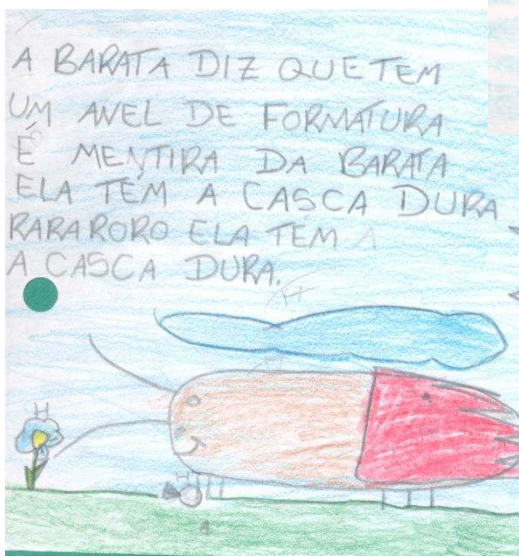 A BARATA DIZ QUE TEM
UM ANEL DE FORMATURA
É MENTIRA DA BARATA
ELA TEM A CASCA DURA
RARARORO ELA TEM A
A CASCA DURA.